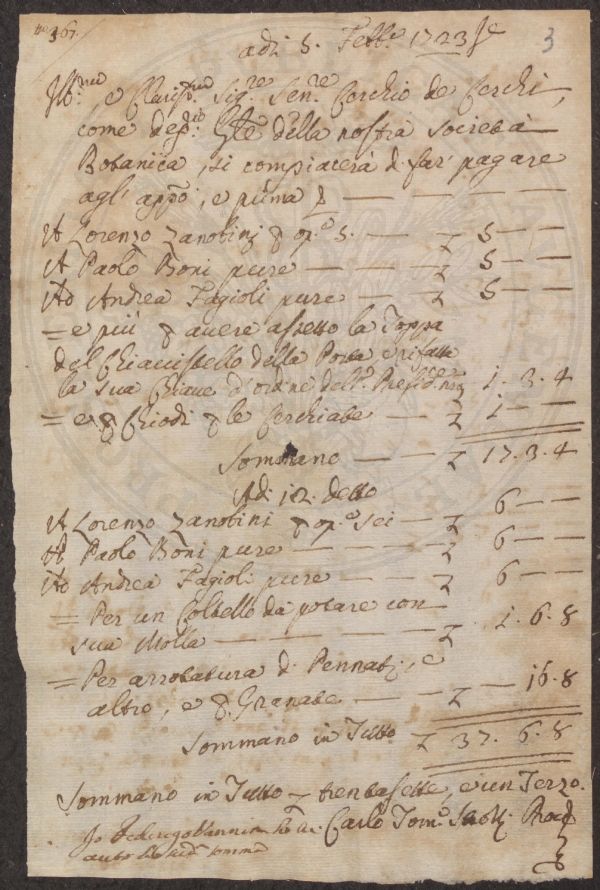 367.
3
adi 5. Febb.º 1723
Ill.mo e Clariss.mo Sig.re Sen.re Cerchio de Cerchi,
come della nostra società
Botanica, si compiacerà di far' pagare
agl' app.º, e prima
A Lorenzo Zanobini op.e 5. — — 5 — —
A Paolo Boni pure — — — 5 — —
Ad Andrea Fagioli pure — — 5 — —
= e più avere assetto la Toppa
del Chiavistello della Porta e rifatto
la sua Chiave d'ordine dell. 1. 3. 4
= e Chiodi le Cerchiate — 1 — —
Sommano — 17. 3. 4
Adi 12. detto
A Lorenzo Zanobini op.e sei — 6 — —
A Paolo Boni pure — — — 6 — —
Ad Andrea Fagioli pure — — 6 — —
= Per un Coltello da potare con
sua Molla — — — — 1. 6. 8
= Per arrotatura di Pennati, e
altro, e Granate — — — 16. 8
Sommano in Tutto 37. 6. 8
Sommano in Tutto trentasette, e un Terzo.
Io Federigo Vannini ho
Carlo Tom.º
somma